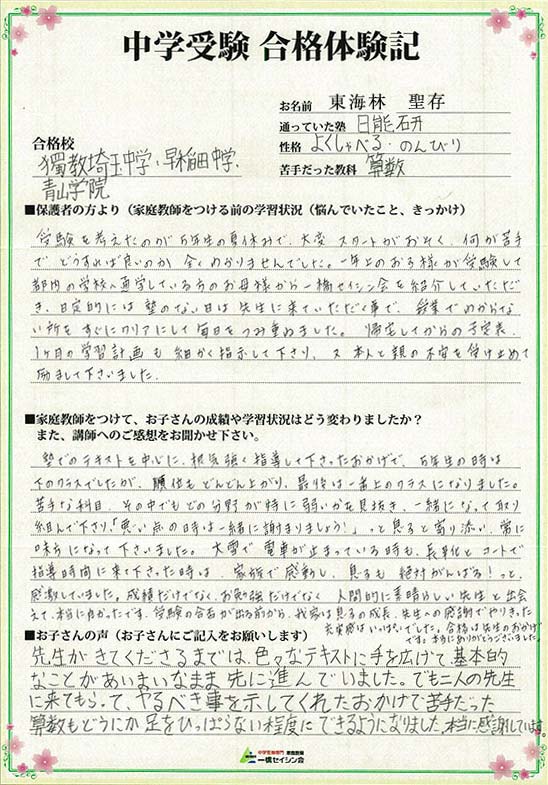 中学受験 合格体験記
お名前 東海林 聖存
通っていた塾 日能研
合格校
性格 よくしゃべる・のんびり
獨教埼玉中学、早稲田中学、
苦手だった教科 算数
青山学院
■保護者の方より（家庭教師をつける前の学習状況（悩んでいたこと、きっかけ）
受験を考えたのが5年生の夏休みで、大変スタートがおそく、何が苦手
で どうすれば良いのか 全くわかりませんでした。一年上のお子様が受験して
都内の学校へ通学している方のお母様から一橋セイシン会を紹介していただ
き、日定的には 塾のない日は 先生に来ていただく事で、授業でわからな
い所を すぐにクリアにして 毎日をつみ重ねました。 帰宅してからの予定表、
1ヶ月の学習計画も 細かく指示して下さり、又 本人と親の不安を受け止めて
励まして下さいました。
■家庭教師をつけて、お子さんの成績や学習状況はどう変わりましたか？
また、講師へのご感想をお聞かせ下さい。
塾でのテキストを中心に、根気強く指導して下さったおかげで、5年生の時は
下のクラスでしたが、順位もどんどん上がり、最後は一番上のクラスになりました。
苦手な科目、その中でもどの分野が特に弱いかを見抜き、一緒になって取り
組んで下さり、「悪い点の時は一緒に謝りましょう！」っと息子に寄り添い、常に
味方になって下さいました。大雪で電車が止まっている時も、長靴とコートで
指導時間に来て下さった時は、家族で感動し、息子も 絶対がんばる！っと、
感激していました。成績だけでなく、お勉強だけでなく 人間的に素晴らしい先生と出会
えて、本当に良かったです。受験の合否が出る前から、我家は息子の成長、先生への感謝でやりきった
充実感でいっぱいでした。合格は先生のおかげ
です。本当にありがとうございました。
■お子さんの声（お子さんにご記入をお願いします）
先生がきてくださるまでは、色々なテキストに手を広げて、基本的
なことがあいまいなまま 先に進んでいました。でも二人の先生
に来てもらって、やるべき事を示してくれたおかげで苦手だった
算数もどうにか足をひっぱらない程度にできるようになりました。本当に感謝しています。
中学受験専門 家庭教師
一橋セイシン会